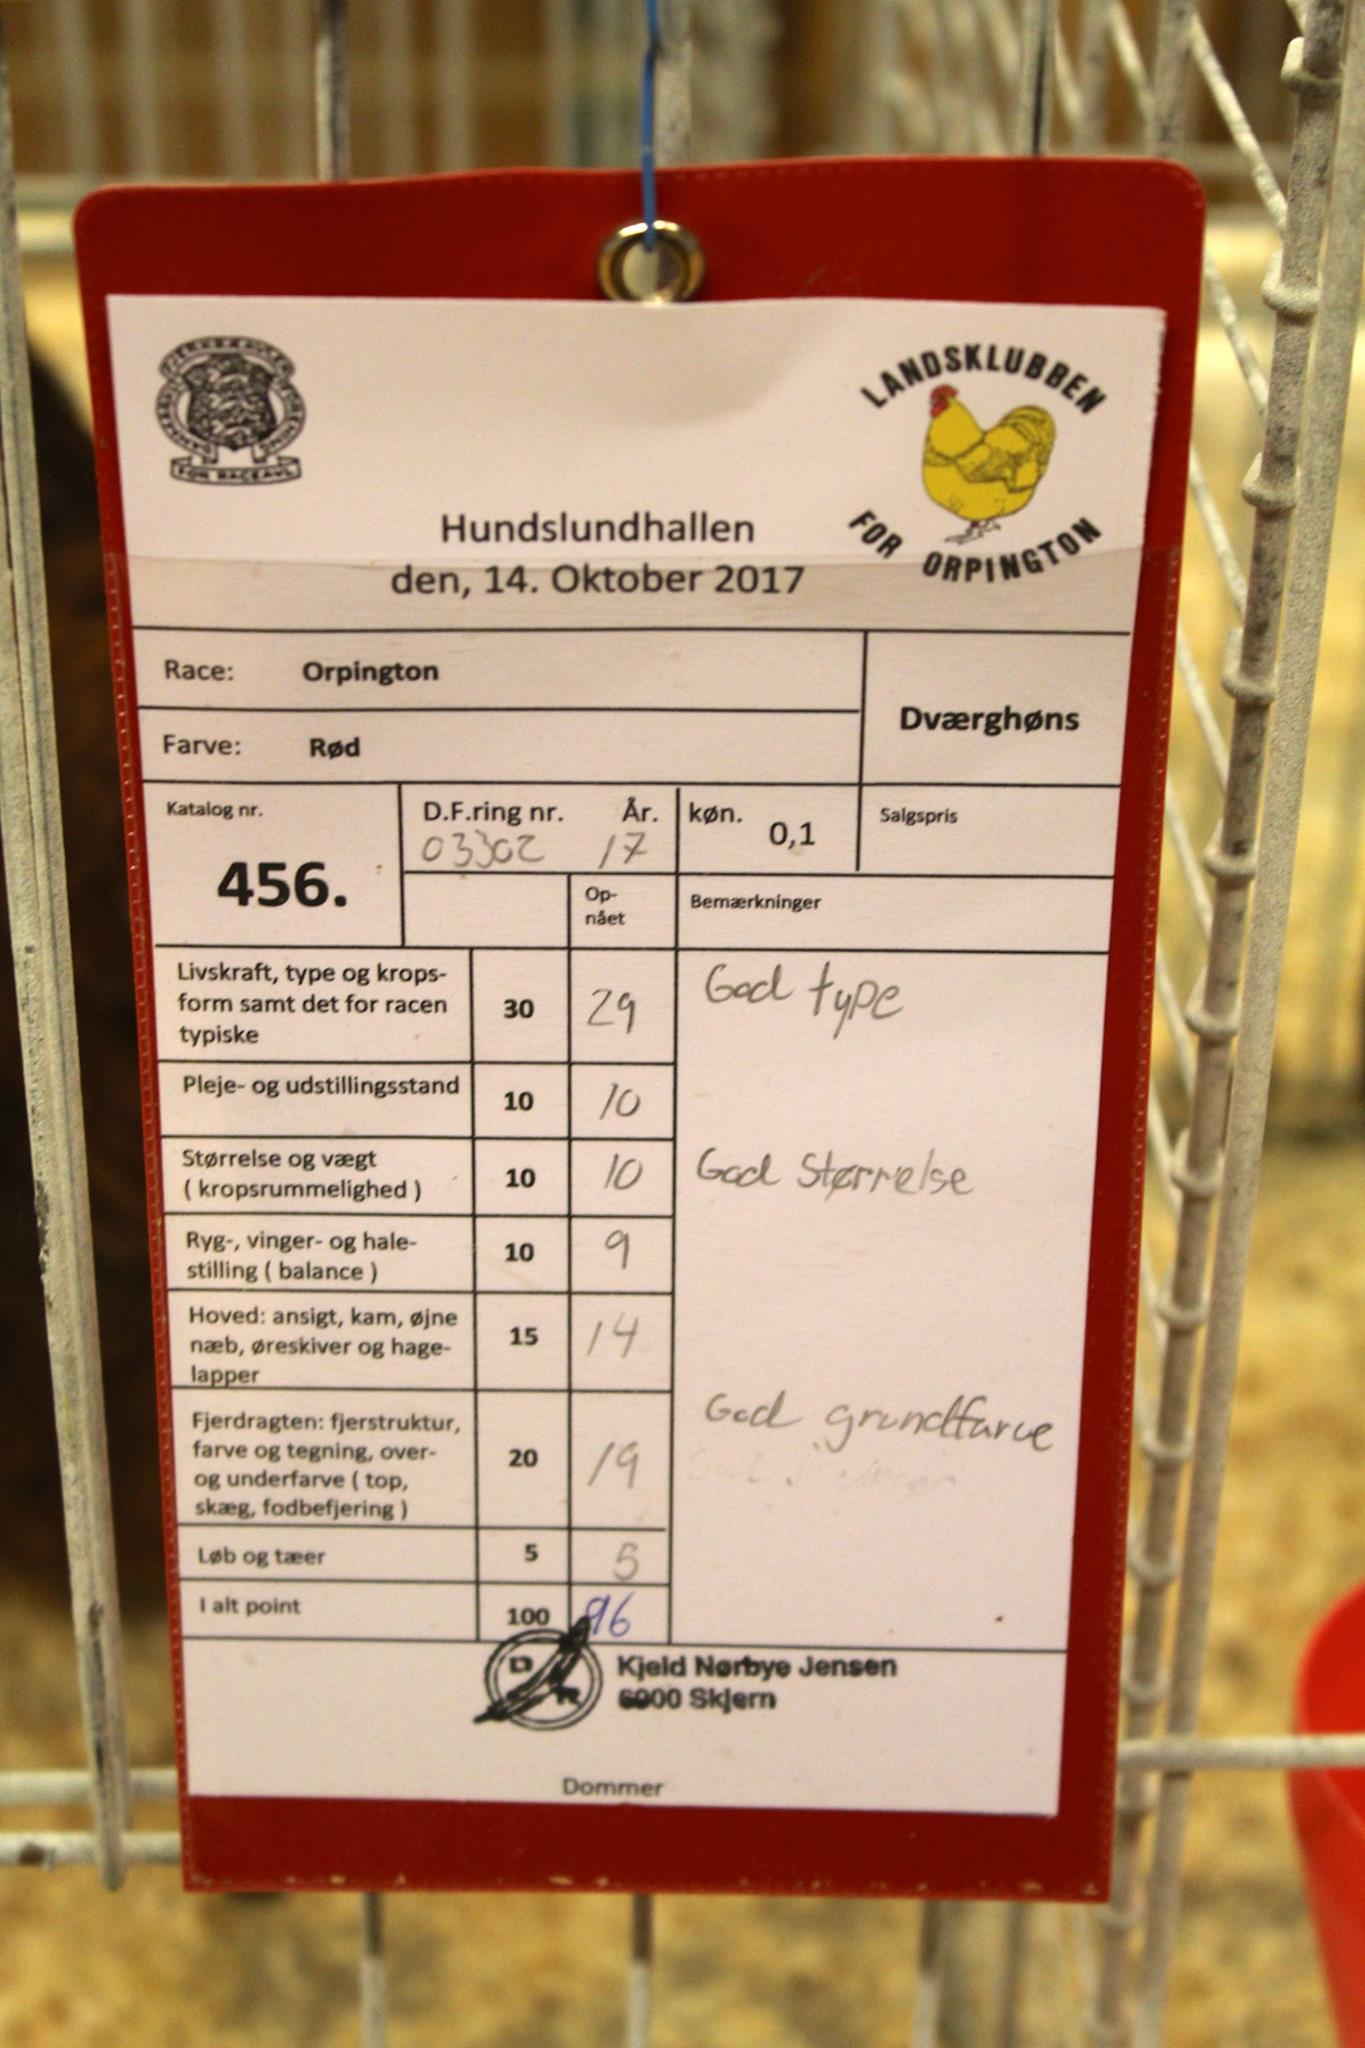 DANMARKS FJERKRÆAVLERFORENING
FOR RACEAVL
LANDSKLUBBEN
FOR ORPINGTON
Hundslundhallen
den, 14. Oktober 2017
Race: Orpington
Dværghøns
Farve: Rød
Katalog nr.
456.
D.F.ring nr. År.
03302 17
køn. 0,1
Salgspris
Op-
nået
Bemærkninger
Livskraft, type og krops-
form samt det for racen
typiske
30 29 God type
Pleje- og udstillingsstand
10 10
Størrelse og vægt
( kropsrummelighed )
10 10 God Størrelse
Ryg-, vinger- og hale-
stilling ( balance )
10 9
Hoved: ansigt, kam, øjne
næb, øreskiver og hage-
lapper
15 14
Fjerdragten: fjerstruktur,
farve og tegning, over-
og underfarve ( top,
skæg, fodbefjering )
20 19 God grundfarve
Løb og tæer 5 5
I alt point 100 96
D
R
Kjeld Nørbye Jensen
6900 Skjern
Dommer